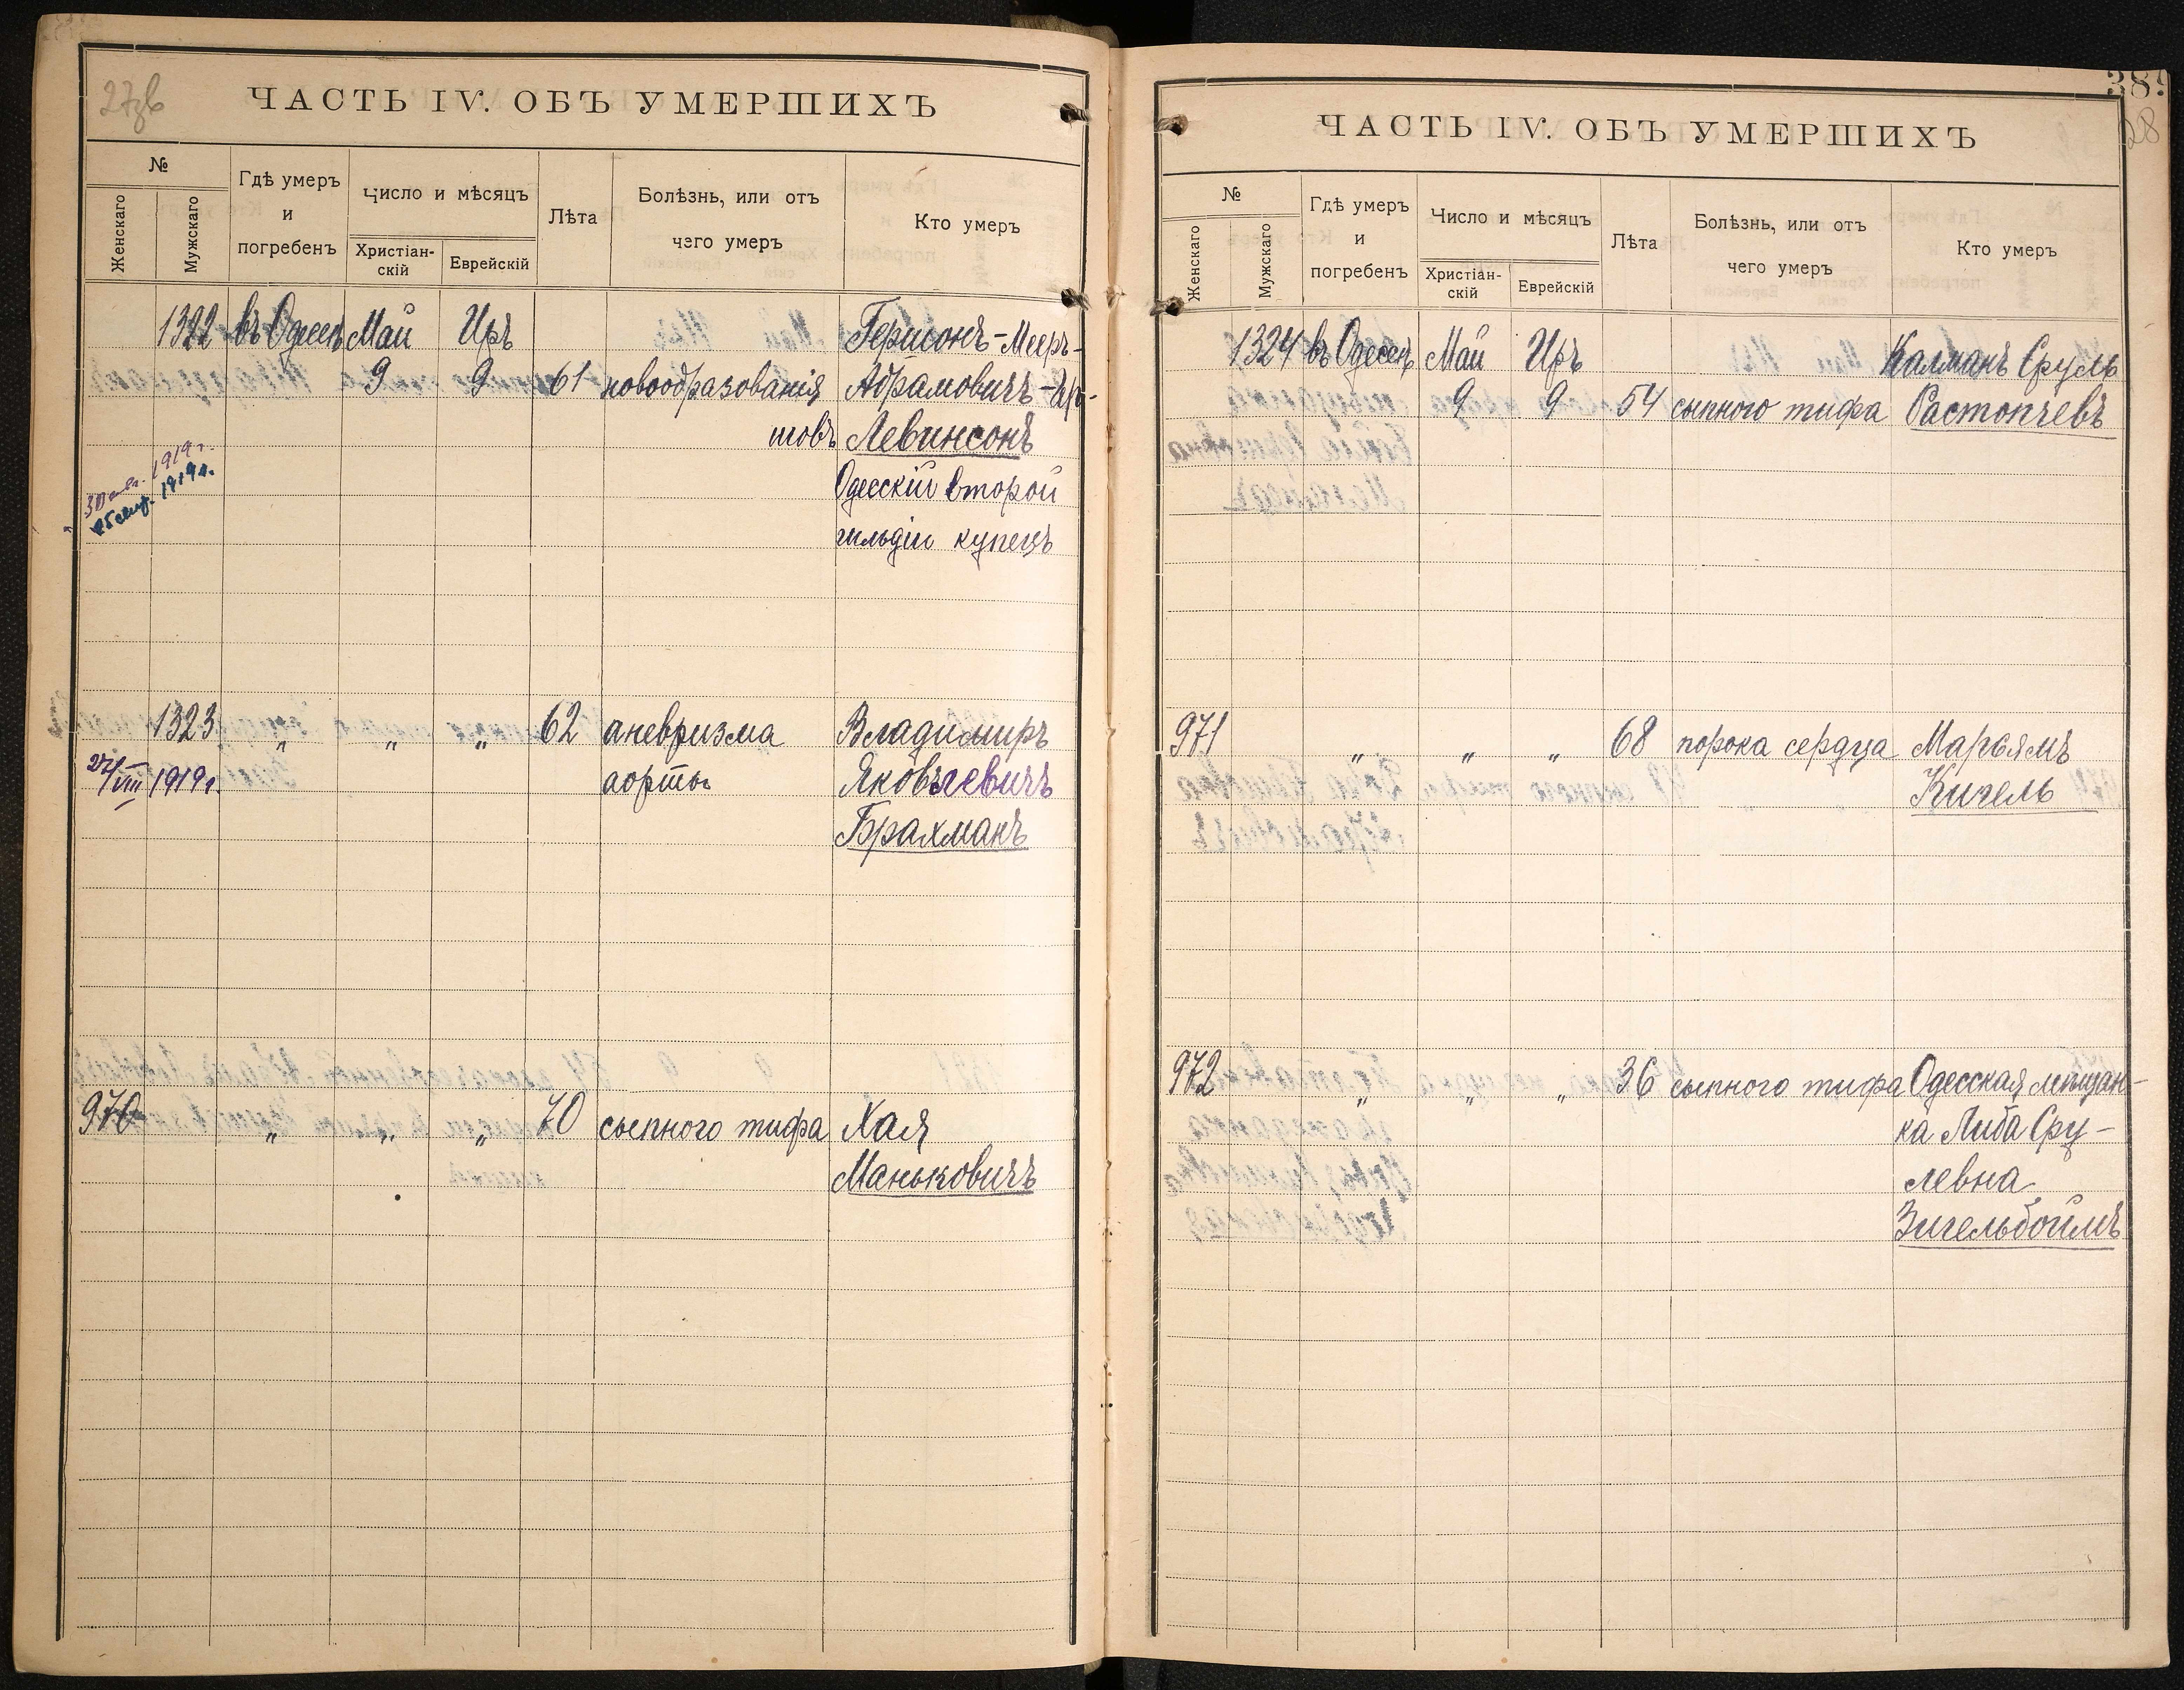 27об
ЧАСТЬ IV. ОБЪ УМЕРШИХЪ
№
Женскаго
Мужскаго
Гдѣ умеръ
и
погребенъ
Число и мѣсяцъ
Христіан-
скій
Еврейскій
Лѣта
Болѣзнь, или отъ
чего умеръ
Кто умеръ
1322 въ Одессѣ Май Иръ Гершонъ-Мееръ-
9 9 61 новообразованія Абрамовичъ-
Левинсонъ
1919г.
1919г.
Одесскій второй
гильдіи купецъ
1323 „ „ „ 62 аневризма Владимиръ
27/VIII 1919г. аорты Яковлевичъ
Брахманъ
970 „ „ „ 70 сыпного тифа Хая
Маньковичъ
28
ЧАСТЬ IV. ОБЪ УМЕРШИХЪ
№
Женскаго
Мужскаго
Гдѣ умеръ
и
погребенъ
Число и мѣсяцъ
Христіан-
скій
Еврейскій
Лѣта
Болѣзнь, или отъ
чего умеръ
Кто умеръ
1324 въ Одессѣ Май Иръ Калманъ Сруль
9 9 54 сыпного тифа Растопчевъ
971 „ „ „ 68 порока сердца Марьямъ
Кигель
972 „ „ „ 36 сыпного тифа Одесская мѣщан-
ка Либа Сру-
левна
Зигельбоймъ